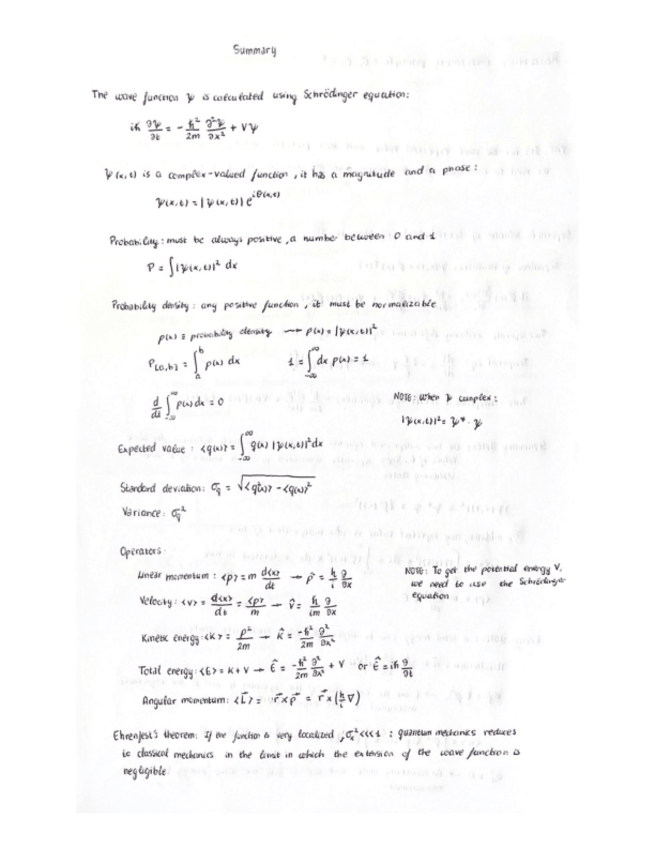 Summary
The wave function ψ is calculated using Schrödinger equation:
iħ ∂ψ/∂t = - ħ²/2m ∂²ψ/∂x² + Vψ
ψ(x,t) is a complex-valued function, it has a magnitude and a phase:
ψ(x,t) = |ψ(x,t)| e^{iθ(x,t)}
Probability: must be always positive, a number between 0 and 1
P = ∫|ψ(x,t)|² dx
Probability density: any positive function, it must be normalizable
p(x) ≡ probability density → p(x) = |ψ(x,t)|²
P[a,b] = ∫_a^b p(x) dx    1 = ∫_{-∞}^{∞} dx p(x) = 1
d/dt ∫_{-∞}^{∞} p(x) dx = 0
NOTE: When ψ complex:
|ψ(x,t)|² = ψ* · ψ
Expected value: <q(x)> = ∫_{-∞}^{∞} q(x) |ψ(x,t)|² dx
Standard deviation: σ_q = √(<q²(x)> - <q(x)>²)
Variance: σ_q²
Operators:
Linear momentum: <p> = m d<x>/dt → p̂ = ħ/i ∂/∂x
NOTE: To get the potential energy V,
we need to use the Schrödinger
equation
Velocity: <v> = d<x>/dt = <p>/m → v̂ = ħ/im ∂/∂x
Kinetic energy: <K> = p²/2m → K̂ = -ħ²/2m ∂²/∂x²
Total energy: <E> = K + V → Ê = -ħ²/2m ∂²/∂x² + V or Ê = iħ ∂/∂t
Angular momentum: <L⃗> = r⃗ × p⃗ = r⃗ × (ħ/i ∇)
Ehrenfest's theorem: If the function is very localized, σ_x² <<< 1 : quantum mechanics reduces
to classical mechanics in the limit in which the extension of the wave function is
negligible.